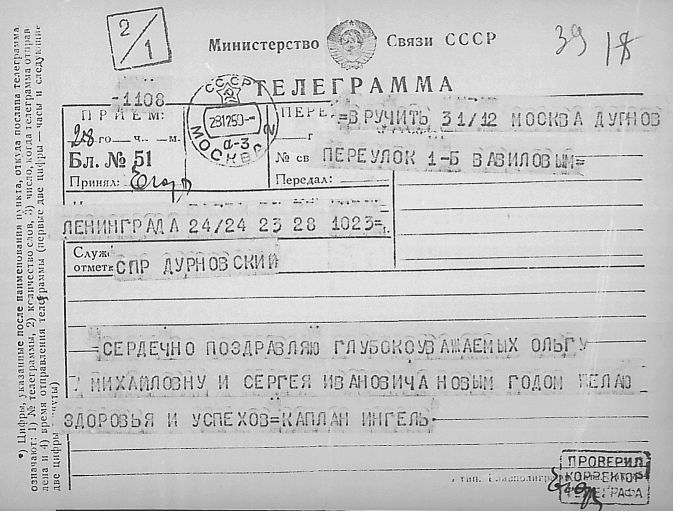 2/1
Министерство Связи СССР
39 18
ТЕЛЕГРАММА
-1108
ПРИЕМ:
28 го — ч. — м.
Бл. № 51
Принял:
СССР
281250
а-3
МОСКВА
ПЕРЕ
=ВРУЧИТЬ 31/12 МОСКВА ДУРНОВ
г
№ св ПЕРЕУЛОК 1-Б ВАВИЛОВЫМ=
Передал:
ЛЕНИНГРАДА 24/24 23 28 1023=
Служе
отметк СПР ДУРНОВСКИЙ
=СЕРДЕЧНО ПОЗДРАВЛЯЮ ГЛУБОКОУВАЖАЕМЫХ ОЛЬГУ
МИХАЙЛОВНУ И СЕРГЕЯ ИВАНОВИЧА НОВЫМ ГОДОМ ЖЕЛАЮ
ЗДОРОВЬЯ И УСПЕХОВ=КАПЛАН ИНГЕЛЬ-
ПРОВЕРИЛ
КОРРЕКТОР
ТЕЛЕГРАФА
*) Цифры, указанные после наименования пункта, откуда послана телеграмма
означают: 1) № телеграммы, 2) количество слов, 3) число, когда телеграмма отправ
лена и 4) время отправления телеграммы (первые две цифры — часы и следующие
две цифры минуты)